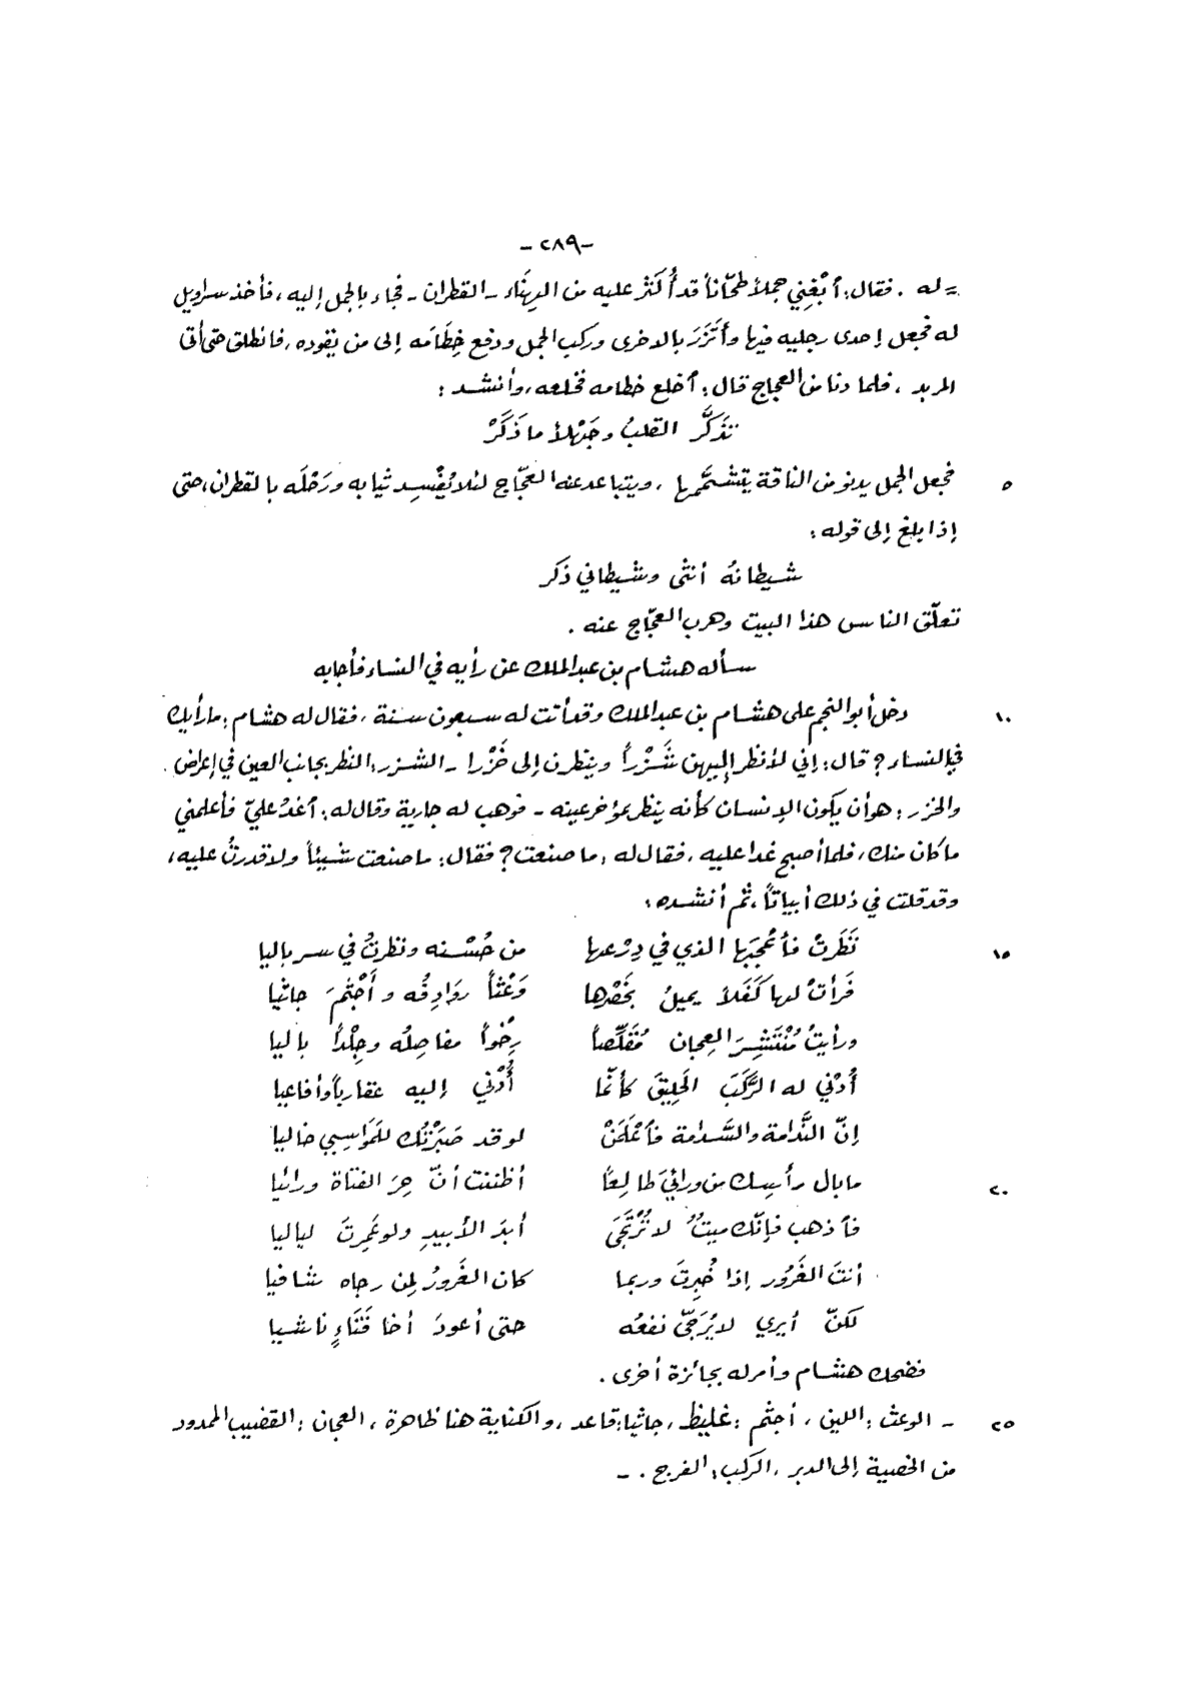 -٢٨٩-
= له . فقال: أبْغِني جملاً طحّاناً قد أُكثرْ عليه من الهِنَاء - القطران - فجاء بالجمل إليه ، فأخذ سراويل
له فجعل إحدى رجليه فيها وأتَزَرَ بالأخرى وركب الجمل ودفع خِطَامَه إلى من يقوده ، فانطلق حتى أتى
المربد ، فلما دنا من العجاج قال : أخلع خطامه فخلعه ، وأنشد :
تَذَكَّر القلبُ وجَهْلاً ما ذَكَرْ
٥ فجعل الجمل يدنو من الناقة يتشمَّمها ، ويتباعد عنه العجّاج لئلا يُفْسِد ثيابه ورَحْلَه بالقطران ، حتى
إذا بلغ إلى قوله :
شيطانهُ أنثى وشيطاني ذَكَر
تعلّق الناس هذا البيت وهرب العجّاج عنه .
سأله هشام بن عبد الملك عن رأيه في النساء فأجابه
١٠ دخل أبو النجم على هشام بن عبد الملك وقد أتت له سبعون سنة ، فقال له هشام : ما رأيك
في النساء ؟ قال : إني لأنظر إليهن شَزْراً وينظرن إلى خَزْرا - الشزر : النظر بجانب العين في إعراض .
والخزر : هو أن يكون الإنسان كأنه ينظر بمؤخر عينه - فوهب له جارية وقال له : أغدُ عليّ فأعلمني
ما كان منك ، فلما أصبح غدا عليه ، فقال له : ما صنعت ؟ فقال : ما صنعت شيئاً ولا قدرتُ عليه ،
وقد قلت في ذلك أبياتاً ، ثم أنشده :
١٥ نَظَرَتْ فأعْجَبَها الذي في دِرْعها من حُسْنه ونظرتُ في سرباليا
فَرأتْ لها كَفَلاً يميلُ بخَصْرها وَعْثاً رَوَادِفُه وأَجْثمَ جاثيا
ورأيتُ مُنْتَشِرَ العِجان مُقَلّصاً رِخْواً مفاصِلُه وجِلْداً باليا
أُدْني له الرَّكَبَ الحَلِيقَ كأنّما أُدْني إليه عقارباً وأفاعيا
إنّ النَّدامة والسَّدامة فأعْلَمَنْ لو قد صَبَرْتُك للمَوَاسِي خاليا
٢٠ ما بال رأسِك من ورائيَ طالِعاً أظننت أنّ حِرَ الفتاة ورائيا
فأذهب فإنّك ميتٌ لا تُرْتَجَى أبدَ الأبيدِ ولو عَمِرتَ لياليا
أنتَ الغَرُور إذا خُبِرتَ وربما كان الغَرورُ لمن رجاه شافيا
لكنّ أيري لا يُرَجّى نفعُه حتى أعودَ أخا فَتَاءٍ ناشيا
فضحك هشام وأمر له بجائزة أخرى .
٢٥ - الوعث : اللين ، أجثم : غليظ ، جاثيا : قاعد ، والكناية هنا ظاهرة ، العجان : القضيب الممدود
من الخصية إلى الدبر ، الركب : الفرج . -